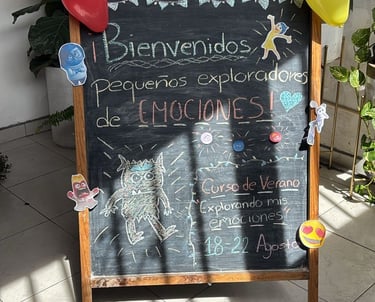 ¡Bienvenidos,
pequeños exploradores
de EMOCIONES!
Curso de Verano
"Explorando mis
emociones"
18-22 Agosto